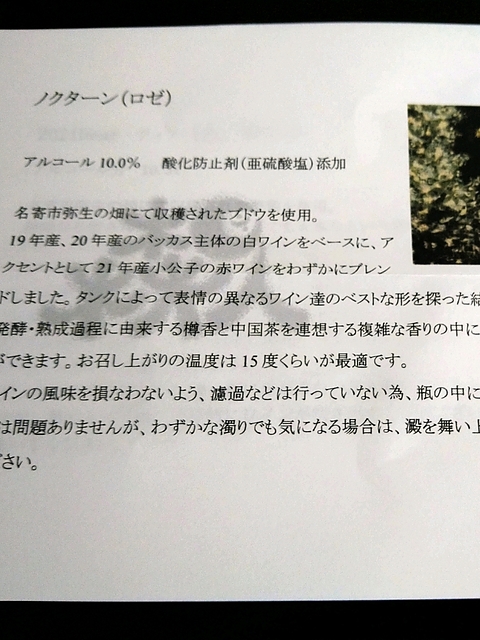 ノクターン（ロゼ）
アルコール 10.0%　酸化防止剤（亜硫酸塩）添加
名寄市弥生の畑にて収穫されたブドウを使用。
19年産、20年産のバッカス主体の白ワインをベースに、ア
クセントとして21年産小公子の赤ワインをわずかにブレン
ドしました。タンクによって表情の異なるワイン達のベストな形を探った結
発酵・熟成過程に由来する樽香と中国茶を連想する複雑な香りの中に
ができます。お召し上がりの温度は15度くらいが最適です。
インの風味を損なわないよう、濾過などは行っていない為、瓶の中に
は問題ありませんが、わずかな濁りでも気になる場合は、澱を舞い上
ださい。